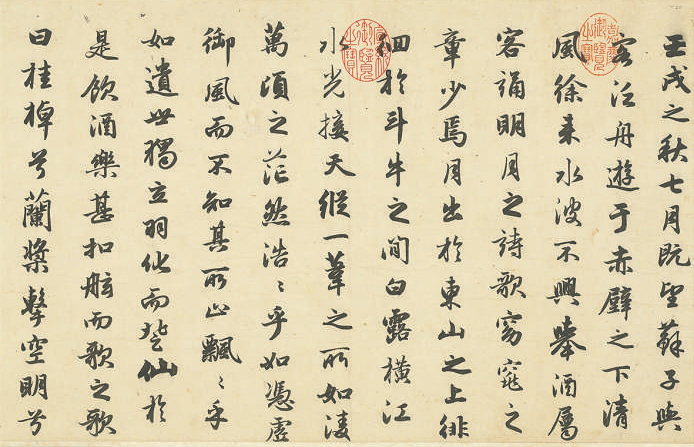 壬戌之秋七月既望蘇子與
客泛舟遊于赤壁之下清
風徐来水波不興舉酒屬
客誦明月之詩歌窈窕之
章少焉月出於東山之上徘
徊於斗牛之間白露橫江
水光接天縱一葦之所如淩
萬頃之茫然浩〻乎如憑虛
御風而不知其所止飄〻乎
如遺世獨立羽化而登仙於
是飲酒樂甚扣舷而歌之歌
曰桂棹兮蘭槳擊空明兮
嘉慶御覽之寶